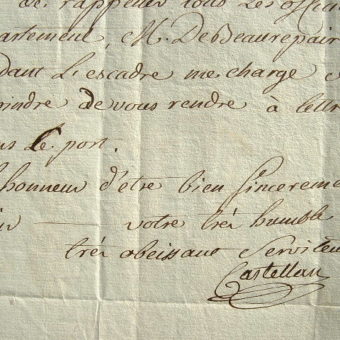 de rappeller tous les Offici
artement, M. De Beaurepair
dant L'escadre me charge
oindre de vous rendre à lettre
us le port.
honneur d'être bien Sincereme
votre très humble
très obeissant Serviteu
Castellan